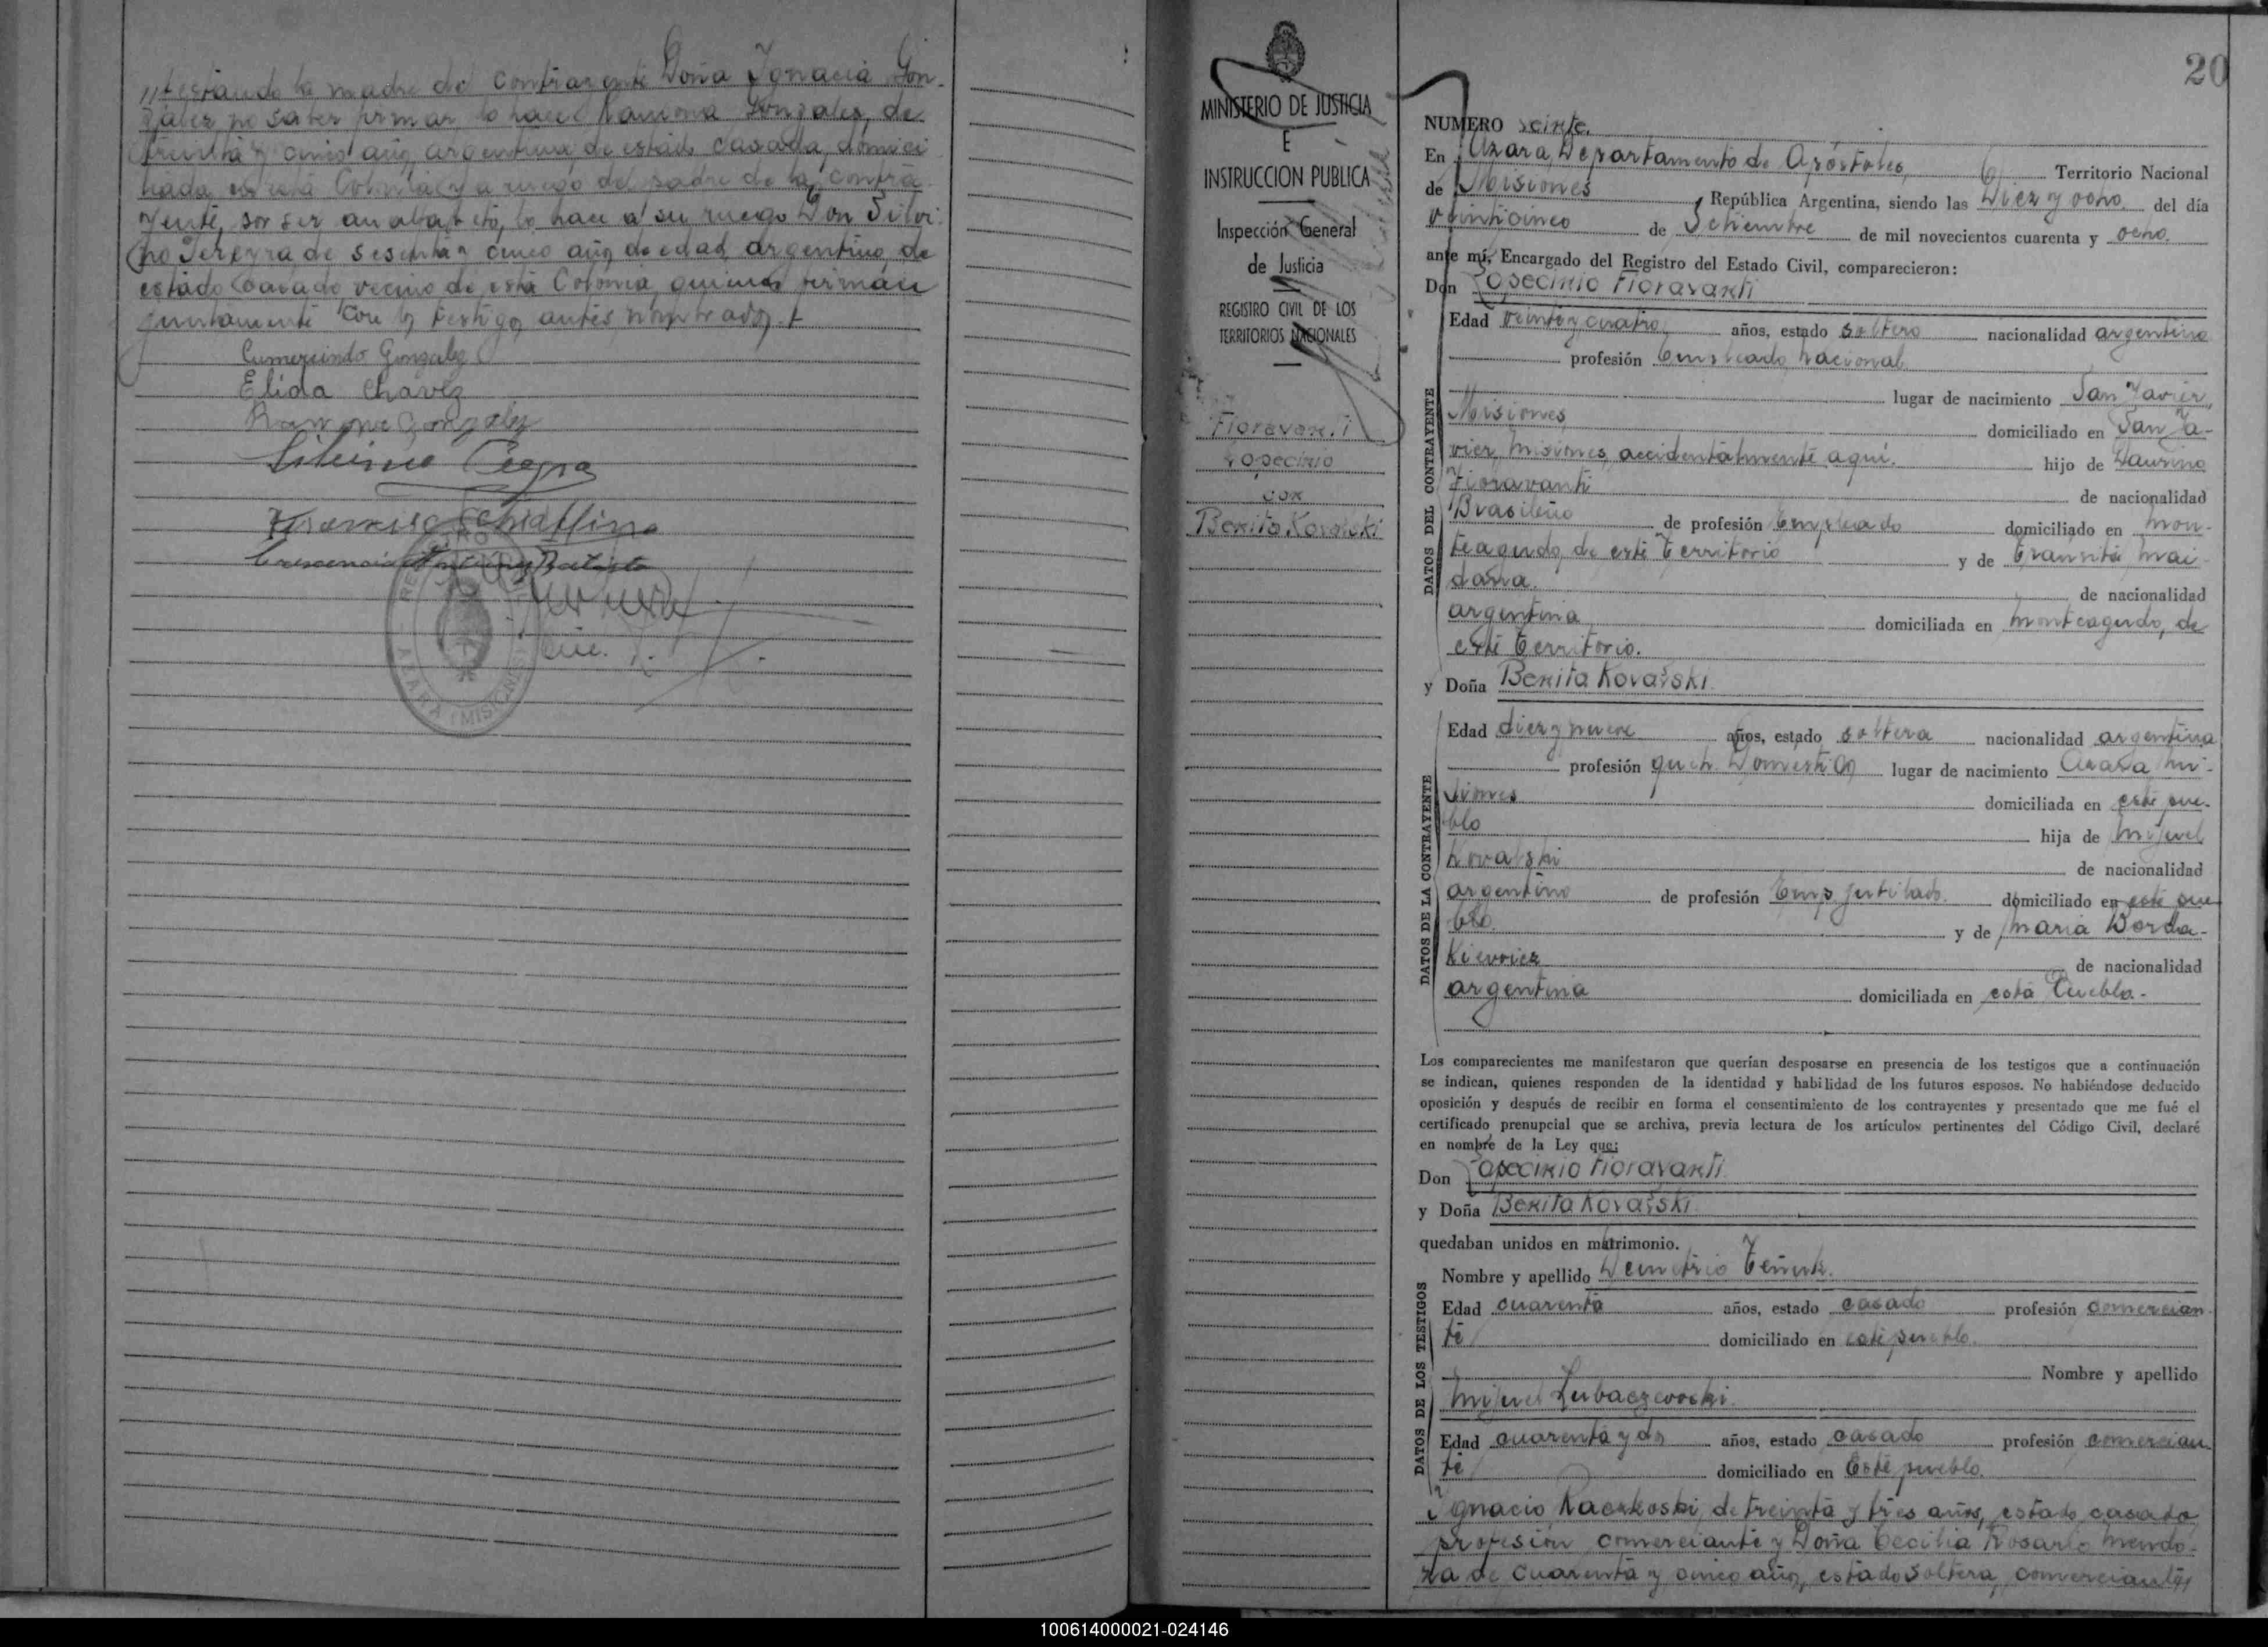 //testando la madre del contrayente Doña Ignacia Gon-
zalez no saber firmar, lo hace Ramona Gonzalez, de
treinta y cinco años, argentina, de estado casada, domici
liada en esta Colonia, y a ruego del padre de la contra
yente, por ser analfabeto, lo hace a su ruego Don Silvi-
no Pereyra de sesenta y cinco años de edad, argentino, de
estado casado vecino de esta Colonia, quienes firman
juntamente con los testigos antes nombrados.
Gumercindo Gonzalez
Elida Chavez
Ramona Gonzalez
AZARA (MISIONES)
20
MINISTERIO DE JUSTICIA
E
INSTRUCCION PUBLICA
Inspección General
de Justicia
REGISTRO CIVIL DE LOS
TERRITORIOS NACIONALES
Fioravanti
con
Benita Kovalski
NUMERO veinte.
En Azara, Departamento de Apóstoles, Territorio Nacional
de Misiones República Argentina, siendo las Diez y ocho del día
veinticinco de Setiembre de mil novecientos cuarenta y ocho.
ante mí, Encargado del Registro del Estado Civil, comparecieron:
Don Fioravanti
Edad veinte y cuatro años, estado soltero nacionalidad argentino
profesión Empleado nacional
lugar de nacimiento San Javier,
Misiones, domiciliado en San Ja-
vier, Misiones, accidentalmente aquí. hijo de Laurino
Fioravanti de nacionalidad
Brasileño de profesión Empleado domiciliado en Mon-
teagudo, de este Territorio y de Transita Mai
dana. de nacionalidad
argentina domiciliada en Monteagudo, de
este Territorio.
y Doña Benita Kovalski.
Edad diez y nueve años, estado soltera nacionalidad argentina
profesión queh. Domesticos lugar de nacimiento Azara Mi-
siones domiciliada en este pue-
blo hija de Miguel
Kovalski de nacionalidad
argentino de profesión Emp. jubilado. domiciliado en este pue
blo. y de Maria Borda-
kievicz de nacionalidad
argentina domiciliada en esta Pueblo.-
DATOS DEL CONTRAYENTE
DATOS DE LA CONTRAYENTE
Los comparecientes me manifestaron que querían desposarse en presencia de los testigos que a continuación
se indican, quienes responden de la identidad y habilidad de los futuros esposos. No habiéndose deducido
oposición y después de recibir en forma el consentimiento de los contrayentes y presentado que me fué el
certificado prenupcial que se archiva, previa lectura de los artículos pertinentes del Código Civil, declaré
en nombre de la Ley que:
Don Fioravanti.
y Doña Benita Kovalski.
quedaban unidos en matrimonio.
DATOS DE LOS TESTIGOS
Nombre y apellido Demetrio
Edad cuarenta años, estado casado profesión comercian-
te domiciliado en este pueblo.
Nombre y apellido
Miguel Lubaczewski.
Edad cuarenta y dos años, estado casado profesión comercian-
te domiciliado en Este pueblo.
Ignacio Raczkoski, de treinta y tres años, estado casado
profesión comerciante y Doña Cecilia Rosario Mendo-
za de cuarenta y cinco años, estado soltera, comerciante,
100614000021-024146